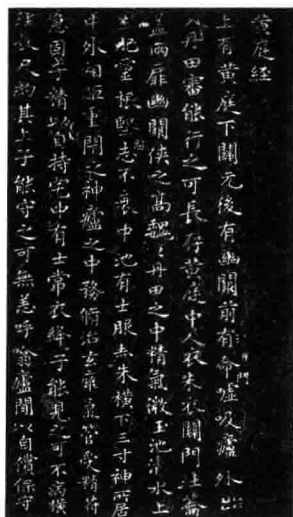 黃庭經
上有黃庭下關元後有幽闕前有命門噓吸廬外出
入丹田審能行之可長存黃庭中人衣朱衣關門壯籥
蓋兩扉幽闕俠之高魏〻丹田之中精氣微玉池清水上
生肥靈根堅志不衰中池有士服赤朱橫下三寸神所居
中外相距重閉之神廬之中務脩治玄廱氣管受精符
急固子精以自持宅中有士常衣絳子能見之可不病橫
理長尺約其上子能守之可無恙呼噏廬間以自償保守